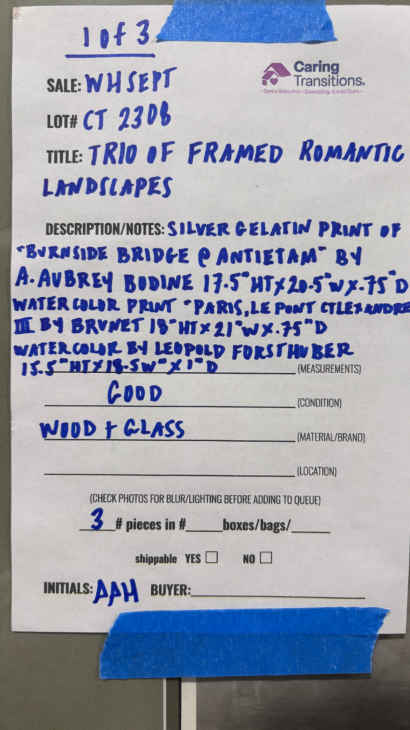 1 of 3
Caring
Transitions.
SALE: WHSEPT
LOT# CT 2308
TITLE: TRIO OF FRAMED ROMANTIC
LANDSCAPES
DESCRIPTION/NOTES: SILVER GELATIN PRINT OF
"BURNSIDE BRIDGE @ ANTIETAM" BY
A. AUBREY BODINE 17.5"HT X 20.5"W X .75"D
WATERCOLOR PRINT "PARIS, LE PONT CTLEXANDRE
III BY BRUNET 18"HT X 21"W X .75"D
WATERCOLOR BY LEOPOLD FORSTHUBER
15.5"HT X 18.5W" X 1"D (MEASUREMENTS)
GOOD (CONDITION)
WOOD + GLASS (MATERIAL/BRAND)
(LOCATION)
(CHECK PHOTOS FOR BLUR/LIGHTING BEFORE ADDING TO QUEUE)
3 # pieces in #_____boxes/bags/______
shippable YES ☐ NO ☐
INITIALS: AAH BUYER: